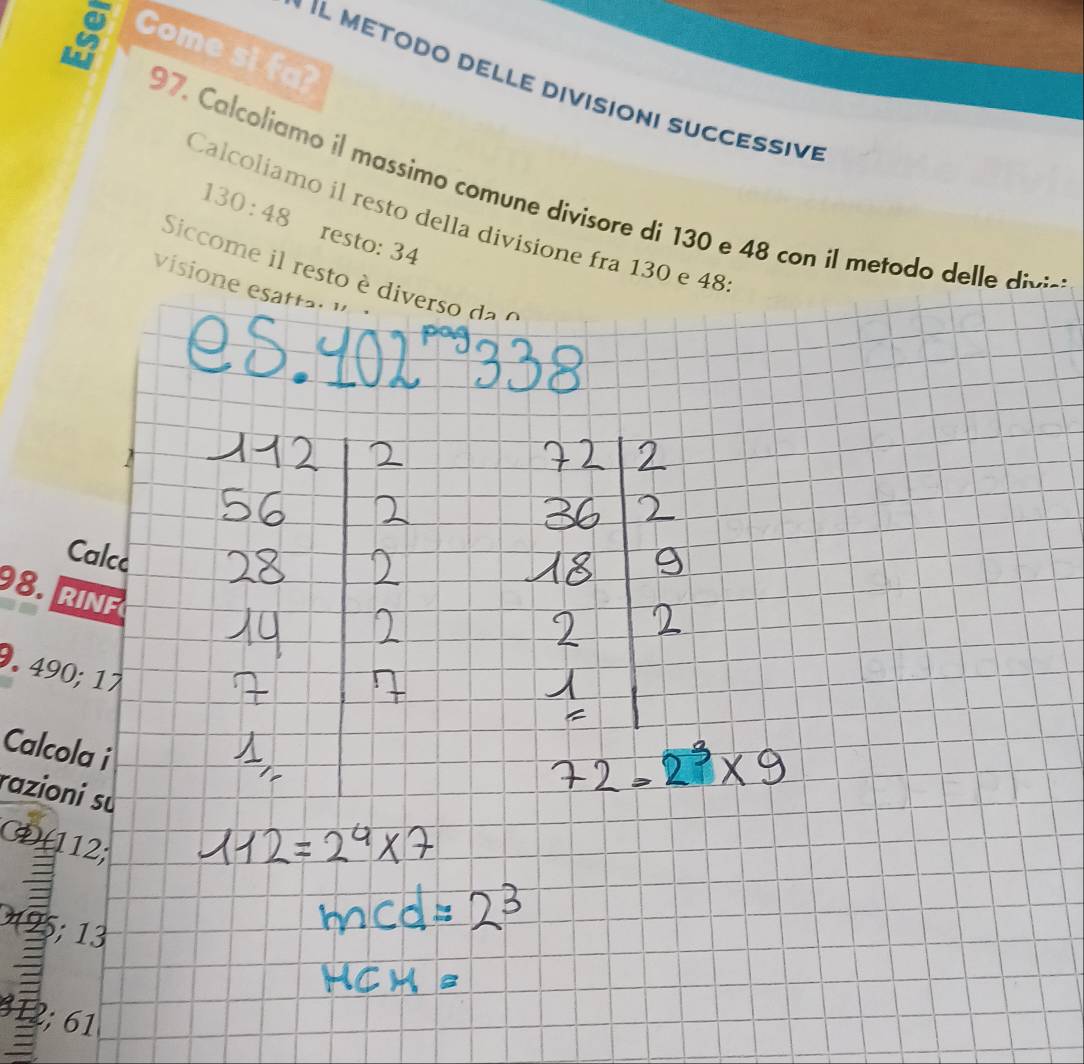 Eser
IL METODO DELLE DIVISIONI SUCCESSIVE
Come si fa?
97. Calcoliamo il massimo comune divisore di 130 e 48 con il metodo delle
Calcoliamo il resto della divisione fra 130 e 48:
130 : 48 resto: 34
Siccome il resto è diverso da
visione
es. 102 pag 338
112 | 2 72 | 2
56 | 2 36 | 2
28 | 2 18 | 9
14 | 2 2 | 2
7 | 7 1
1
72 = 2³ × 9
112 = 2⁴ × 7
mcd = 2³
MCM =
Calco
98. RINFO
9. 490; 17
Calcola i
razioni su
112;
13
61